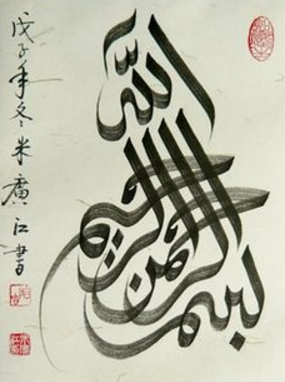 بسم الله الرحمن الرحيم
戊子年冬米廣江書